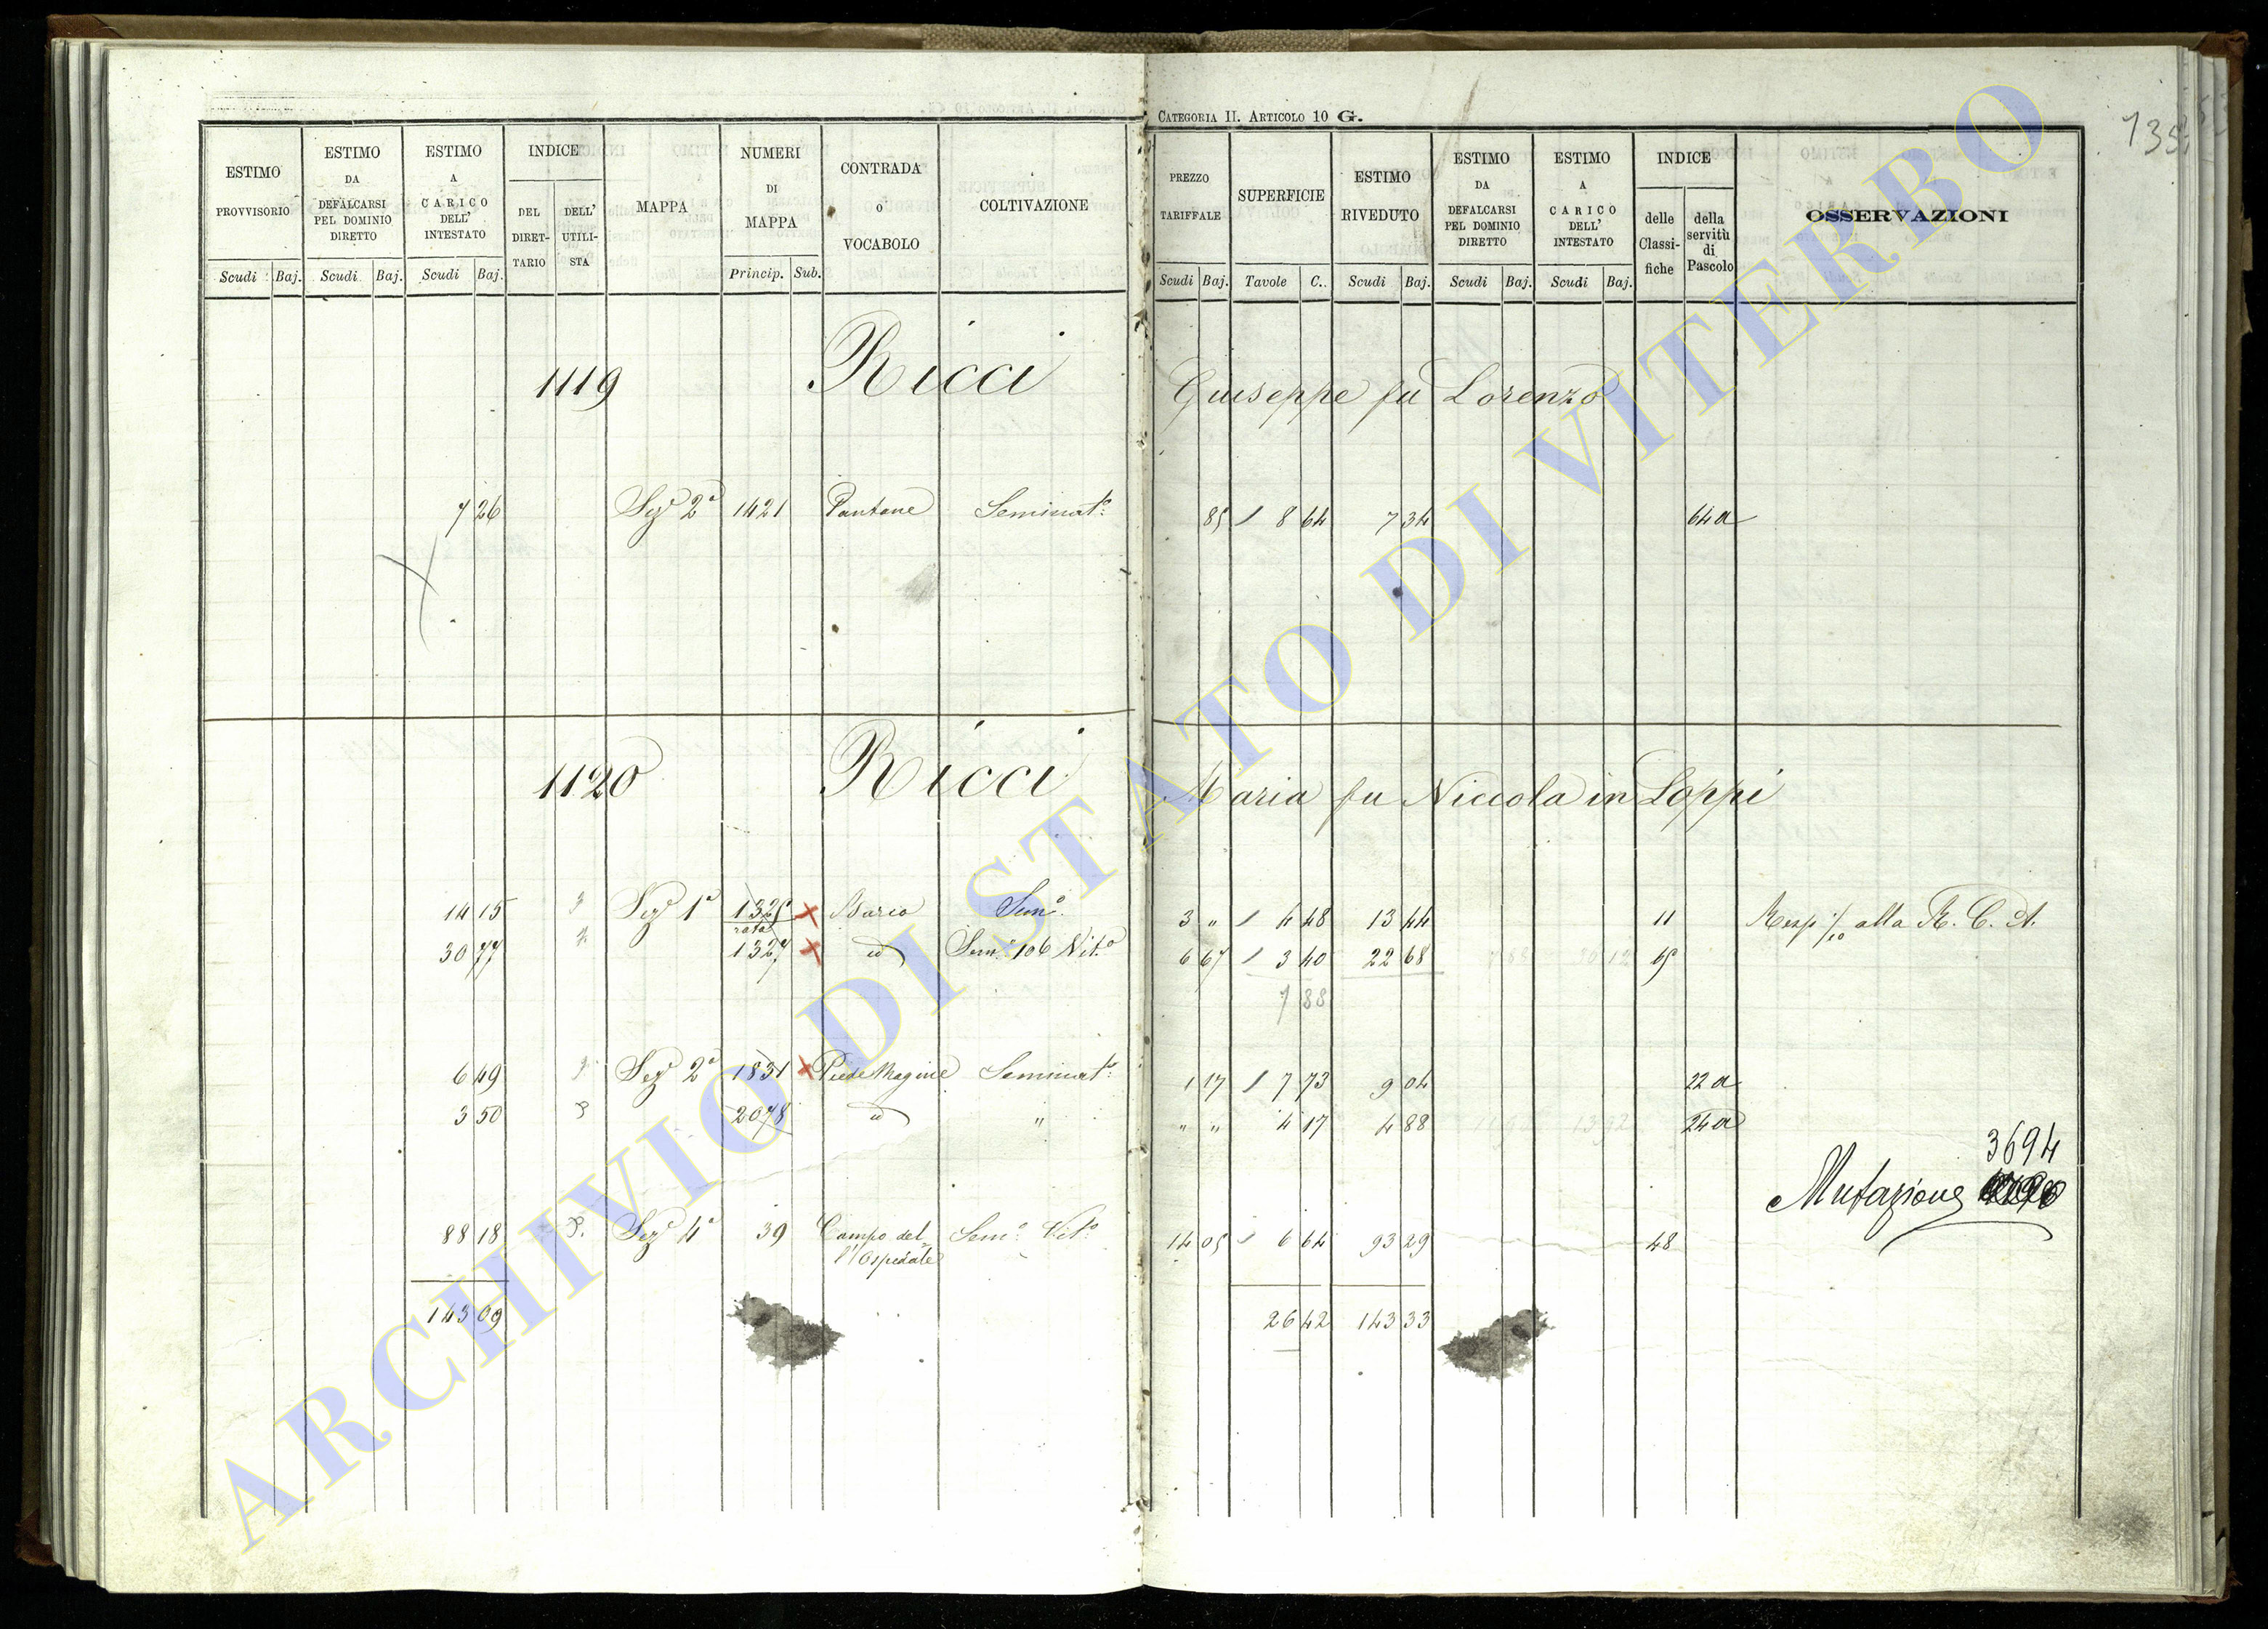 CATEGORIA II. ARTICOLO 10 G.
135
ESTIMO PROVVISORIO
Scudi Baj.
ESTIMO DA DEFALCARSI PEL DOMINIO DIRETTO
Scudi Baj.
ESTIMO A CARICO DELL' INTESTATO
Scudi Baj.
INDICE
DEL DIRET-TARIO
DELL' UTILI-STA
MAPPA
NUMERI DI MAPPA
Princip. Sub.
CONTRADA O VOCABOLO
COLTIVAZIONE
PREZZO TARIFFALE
Scudi Baj.
SUPERFICIE
Tavole C.
ESTIMO RIVEDUTO
Scudi Baj.
ESTIMO DA DEFALCARSI PEL DOMINIO DIRETTO
Scudi Baj.
ESTIMO A CARICO DELL' INTESTATO
Scudi Baj.
INDICE
delle Classi-fiche
della servitù di Pascolo
OSSERVAZIONI
1119 Ricci Giuseppe fu Lorenzo
7 26 Sez.e 2a 1421 Pantane Seminat.o 85 8 64 7 34 64 a
1120 Ricci Maria fu Niccola in Loppi
14 15 Sez.e 1a 1325 Sem.o 3 " 4 48 13 44 11 alla R. C. A.
rata
30 77 1327 id Sem.o 106 Vit.o 6 67 3 40 22 68 65
7 88
6 49 Sez.e 2a 1831 Piede Magine Seminat.o 1 17 7 73 9 04 22 a
3 50 2078 id " " " 4 17 4 88 24 a
3694
Mutazione
88 18 Sez.e 4a 39 Campo del- Sem.o Vit.o 14 05 6 64 93 29 48
l'Ospedale
143 09 26 42 143 33
ARCHIVIO DI STATO DI VITERBO